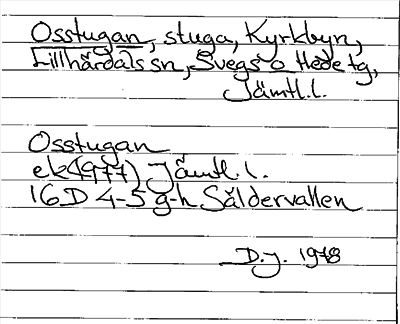 Osstugan, stuga, Kyrkbyn,
Lillhärdals sn, Svegs o Hede tg,
Jämtl.l.
Osstugan
ek(1977) Jämtl.l.
16D 4-5 g-h Säldervallen
D.J. 1978